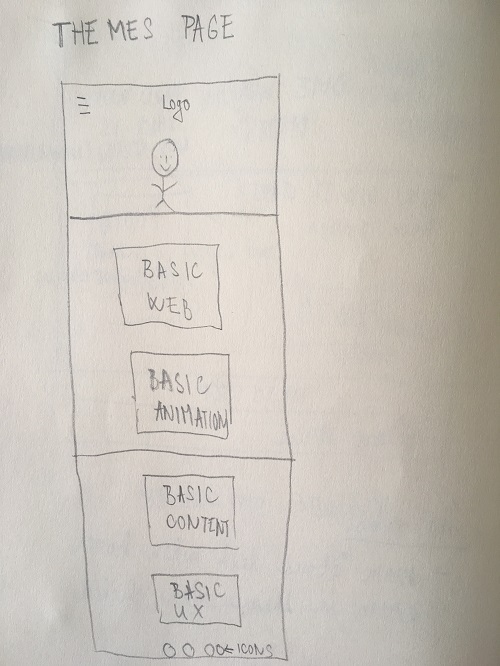 THEMES PAGE
Logo
BASIC
WEB
BASIC
ANIMATION
BASIC
CONTENT
BASIC
UX
ICONS